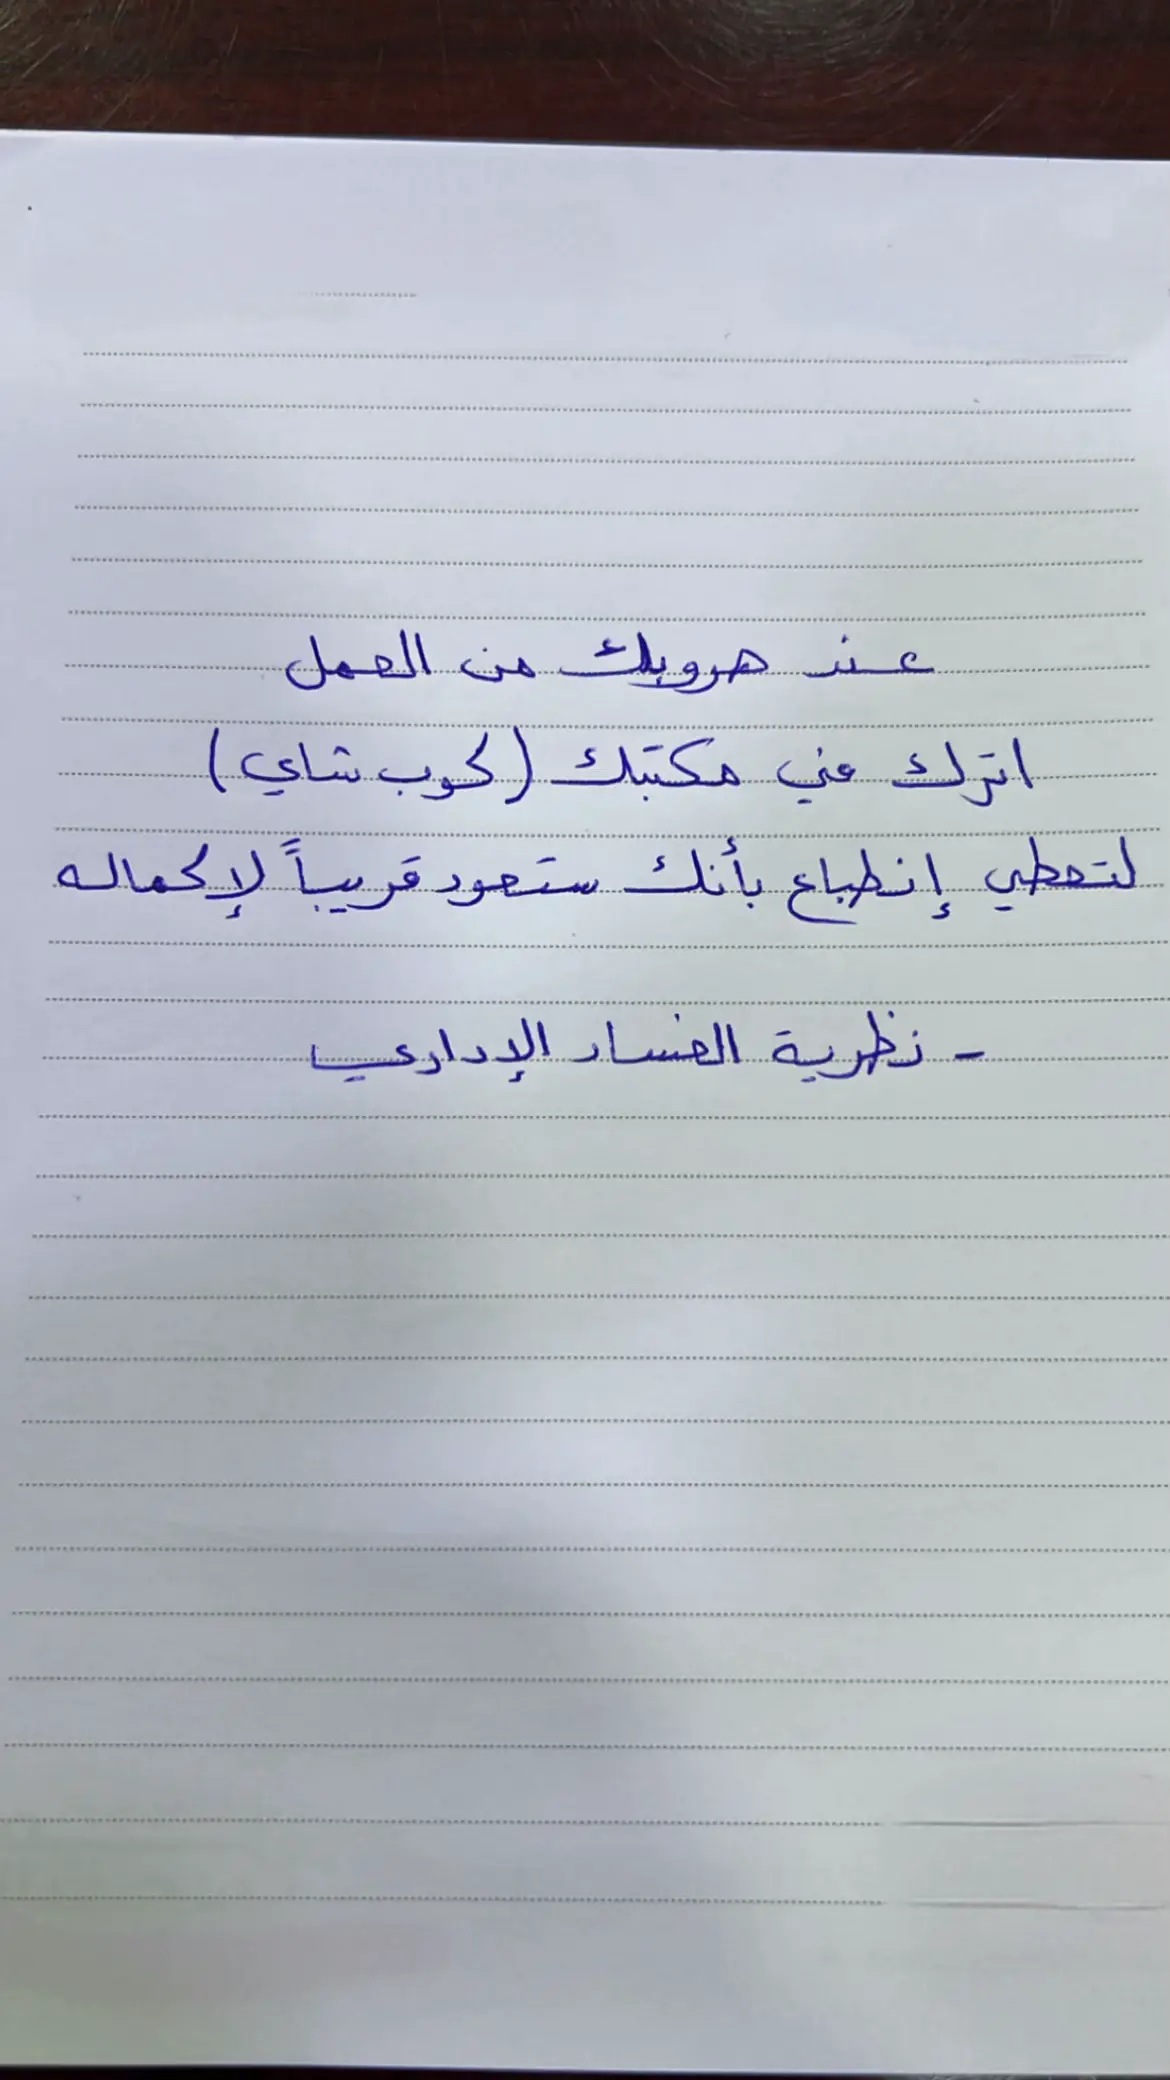 عند هروبك من العمل
اترك في مكتبك (كوب شاي)
لتعطي إنطباع بأنك ستعود قريباً لإكماله
- نظرية الفساد الإداري